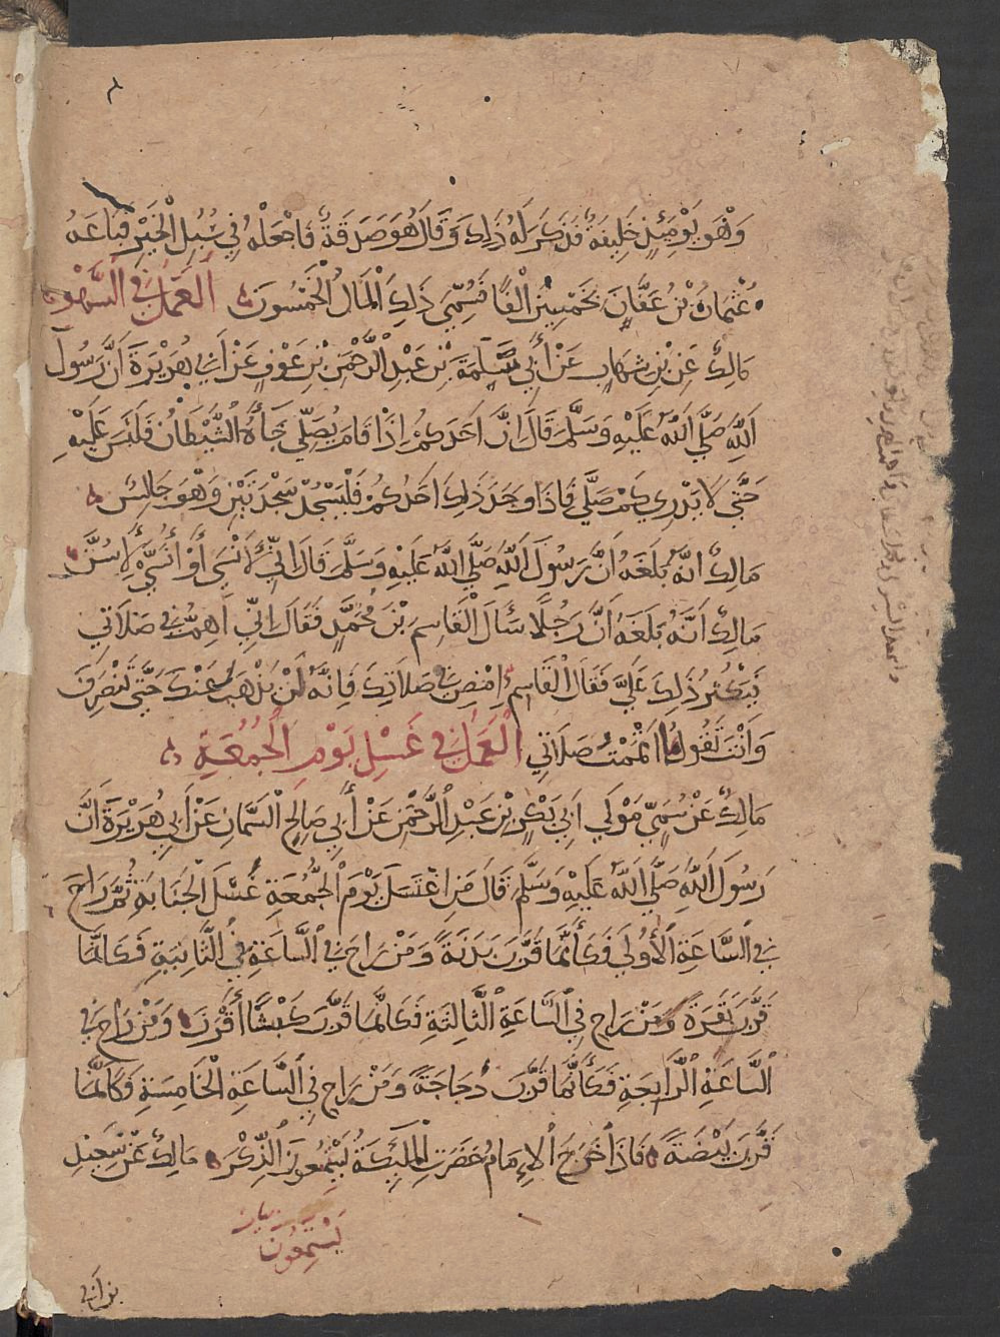 وَهْوَ يَوْمَئِذٍ خَلِيفَةٌ فَذَكَرَ لَهُ ذَلِكَ وَقَالَ هُوَ صَدَقَةٌ فَاجْعَلْهُ فِي سُبُلِ الْخَيْرِ فَبَاعَهُ
عُثْمَانُ بْنُ عَفَّانَ بِخَمْسِينَ أَلْفًا فَسُمِّيَ ذَلِكَ الْمَالُ الْخَمْسُونَ الْعَمَلُ فِي السَّهْوِ
مَالِكٌ عَنِ بْنِ شِهَابٍ عَنْ أَبِي سَلَمَةَ بْنِ عَبْدِ الرَّحْمَنِ بْنِ عَوْفٍ عَنْ أَبِي هُرَيْرَةَ أَنَّ رَسُولَ
اللَّهِ صَلَّى اللَّهُ عَلَيْهِ وَسَلَّمَ قَالَ إِنَّ أَحَدَكُمْ إِذَا قَامَ يُصَلِّي جَأَهُ الشَّيْطَانُ فَلَبَسَ عَلَيْهِ
حَتَّى لَا يَدْرِي كَمْ صَلَّى فَإِذَا وَجَدَ ذَلِكَ أَحَدُكُمْ فَلْيَسْجُدْ سَجْدَتَيْنِ وَهْوَ جَالِسٌ
مَالِكٌ أَنَّهُ بَلَغَهُ أَنَّ رَسُولَ اللَّهِ صَلَّى اللَّهُ عَلَيْهِ وَسَلَّمَ قَالَ إِنِّي لَأَنْسَى أَوْ أُنَسَّى لِأَسُنَّ
مَالِكٌ أَنَّهُ بَلَغَهُ أَنَّ رَجُلًا سَأَلَ الْقَاسِمَ بْنَ مُحَمَّدٍ فَقَالَ إِنِّي أَهِمُ فِي صَلَاتِي
فَيَكْثُرُ ذَلِكَ عَلَيَّ فَقَالَ الْقَاسِمُ امْضِ فِي صَلَاتِكَ فَإِنَّهُ لَنْ يَذْهَبَ عَنْكَ حَتَّى تَنْصَرِفَ
وَأَنْتَ تَقُولُ مَا أَتْمَمْتُ صَلَاتِي الْعَمَلُ فِي غَسْلِ يَوْمِ الْجُمُعَةِ
مَالِكٌ عَنْ سُمَيٍّ مَوْلَى أَبِي بَكْرِ بْنِ عَبْدِ الرَّحْمَنِ عَنْ أَبِي صَالِحٍ السَّمَّانِ عَنْ أَبِي هُرَيْرَةَ أَنَّ
رَسُولَ اللَّهِ صَلَّى اللَّهُ عَلَيْهِ وَسَلَّمَ قَالَ مَنِ اغْتَسَلَ يَوْمَ الْجُمُعَةِ غُسْلَ الْجَنَابَةِ ثُمَّ رَاحَ
فِي السَّاعَةِ الْأُولَى فَكَأَنَّمَا قَرَّبَ بَدَنَةً وَمَنْ رَاحَ فِي السَّاعَةِ فِي الثَّانِيَةِ فَكَأَنَّمَا
قَرَّبَ بَقَرَةً وَمَنْ رَاحَ فِي السَّاعَةِ الثَّالِثَةِ فَكَأَنَّمَا قَرَّبَ كَبْشًا أَقْرَنَ وَمَنْ رَاحَ فِي
السَّاعَةِ الرَّابِعَةِ فَكَأَنَّمَا قَرَّبَ دُجَاجَةً وَمَنْ رَاحَ فِي السَّاعَةِ الْخَامِسَةِ فَكَأَنَّمَا
قَرَّبَ بَيْضَةً فَإِذَا خَرَجَ الْإِمَامُ حَضَرَتِ الْمَلَئِكَةُ يَسْتَمِعُونَ الذِّكْرَ مَالِكٌ عَنْ سَعِيدِ
بيان
يَسْتَمِعُونَ
بن أبي